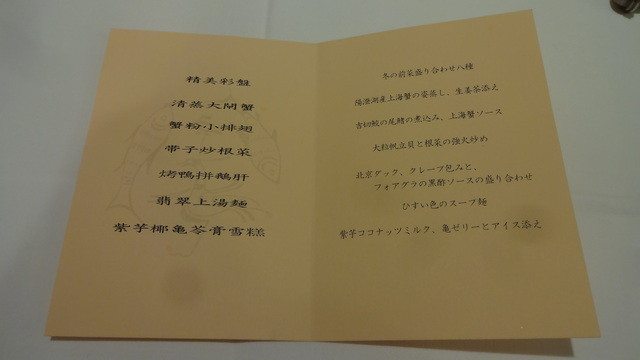 精美彩盤
清蒸大閘蟹
蟹粉小排翅
帯子炒根菜
烤鴨拼鵝肝
翡翠上湯麺
紫芋椰亀苓膏雪糕
冬の前菜盛り合わせ八種
陽澄湖産上海蟹の姿蒸し、生姜茶添え
吉切鮫の尾鰭の煮込み、上海蟹ソース
大粒帆立貝と根菜の強火炒め
北京ダック、クレープ包みと、
フォアグラの黒酢ソースの盛り合わせ
ひすい色のスープ麺
紫芋ココナッツミルク、亀ゼリーとアイス添え